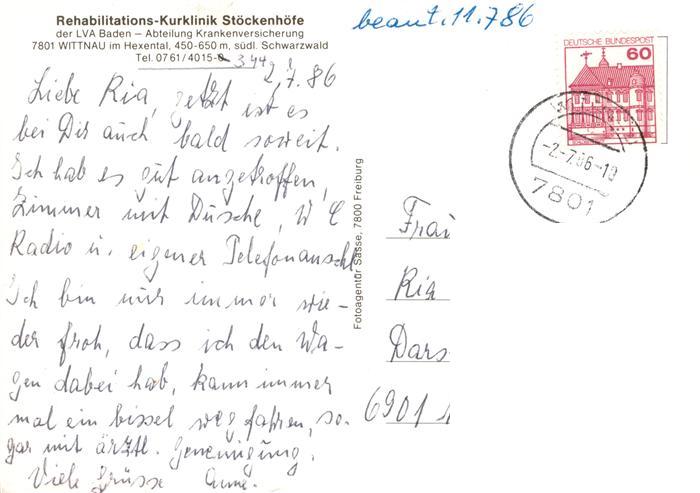 Rehabilitations-Kurklinik Stöckenhöfe
der LVA Baden – Abteilung Krankenversicherung
7801 WITTNAU im Hexental, 450-650 m, südl. Schwarzwald
Tel. 0761/4015-0 344
beant. 11.7.86
2.7.86
Liebe Ria, jetzt ist es
bei Dir auch bald soweit.
Ich hab es gut angetroffen,
Zimmer mit Dusche, WC
Radio u. eigener Telefonanschl
Ich bin nur immer wie-
der froh, dass ich den Wa-
gen dabei hab, kann immer
mal ein bissel wegfahren, so-
gar mit ärztl. Genemigung.
Viele Grüsse Anne.
Fotoagentur Sässe, 7800 Freiburg
DEUTSCHE BUNDESPOST
60
-2.-7.86-18
7801
Frau
Ria
Dars
6901